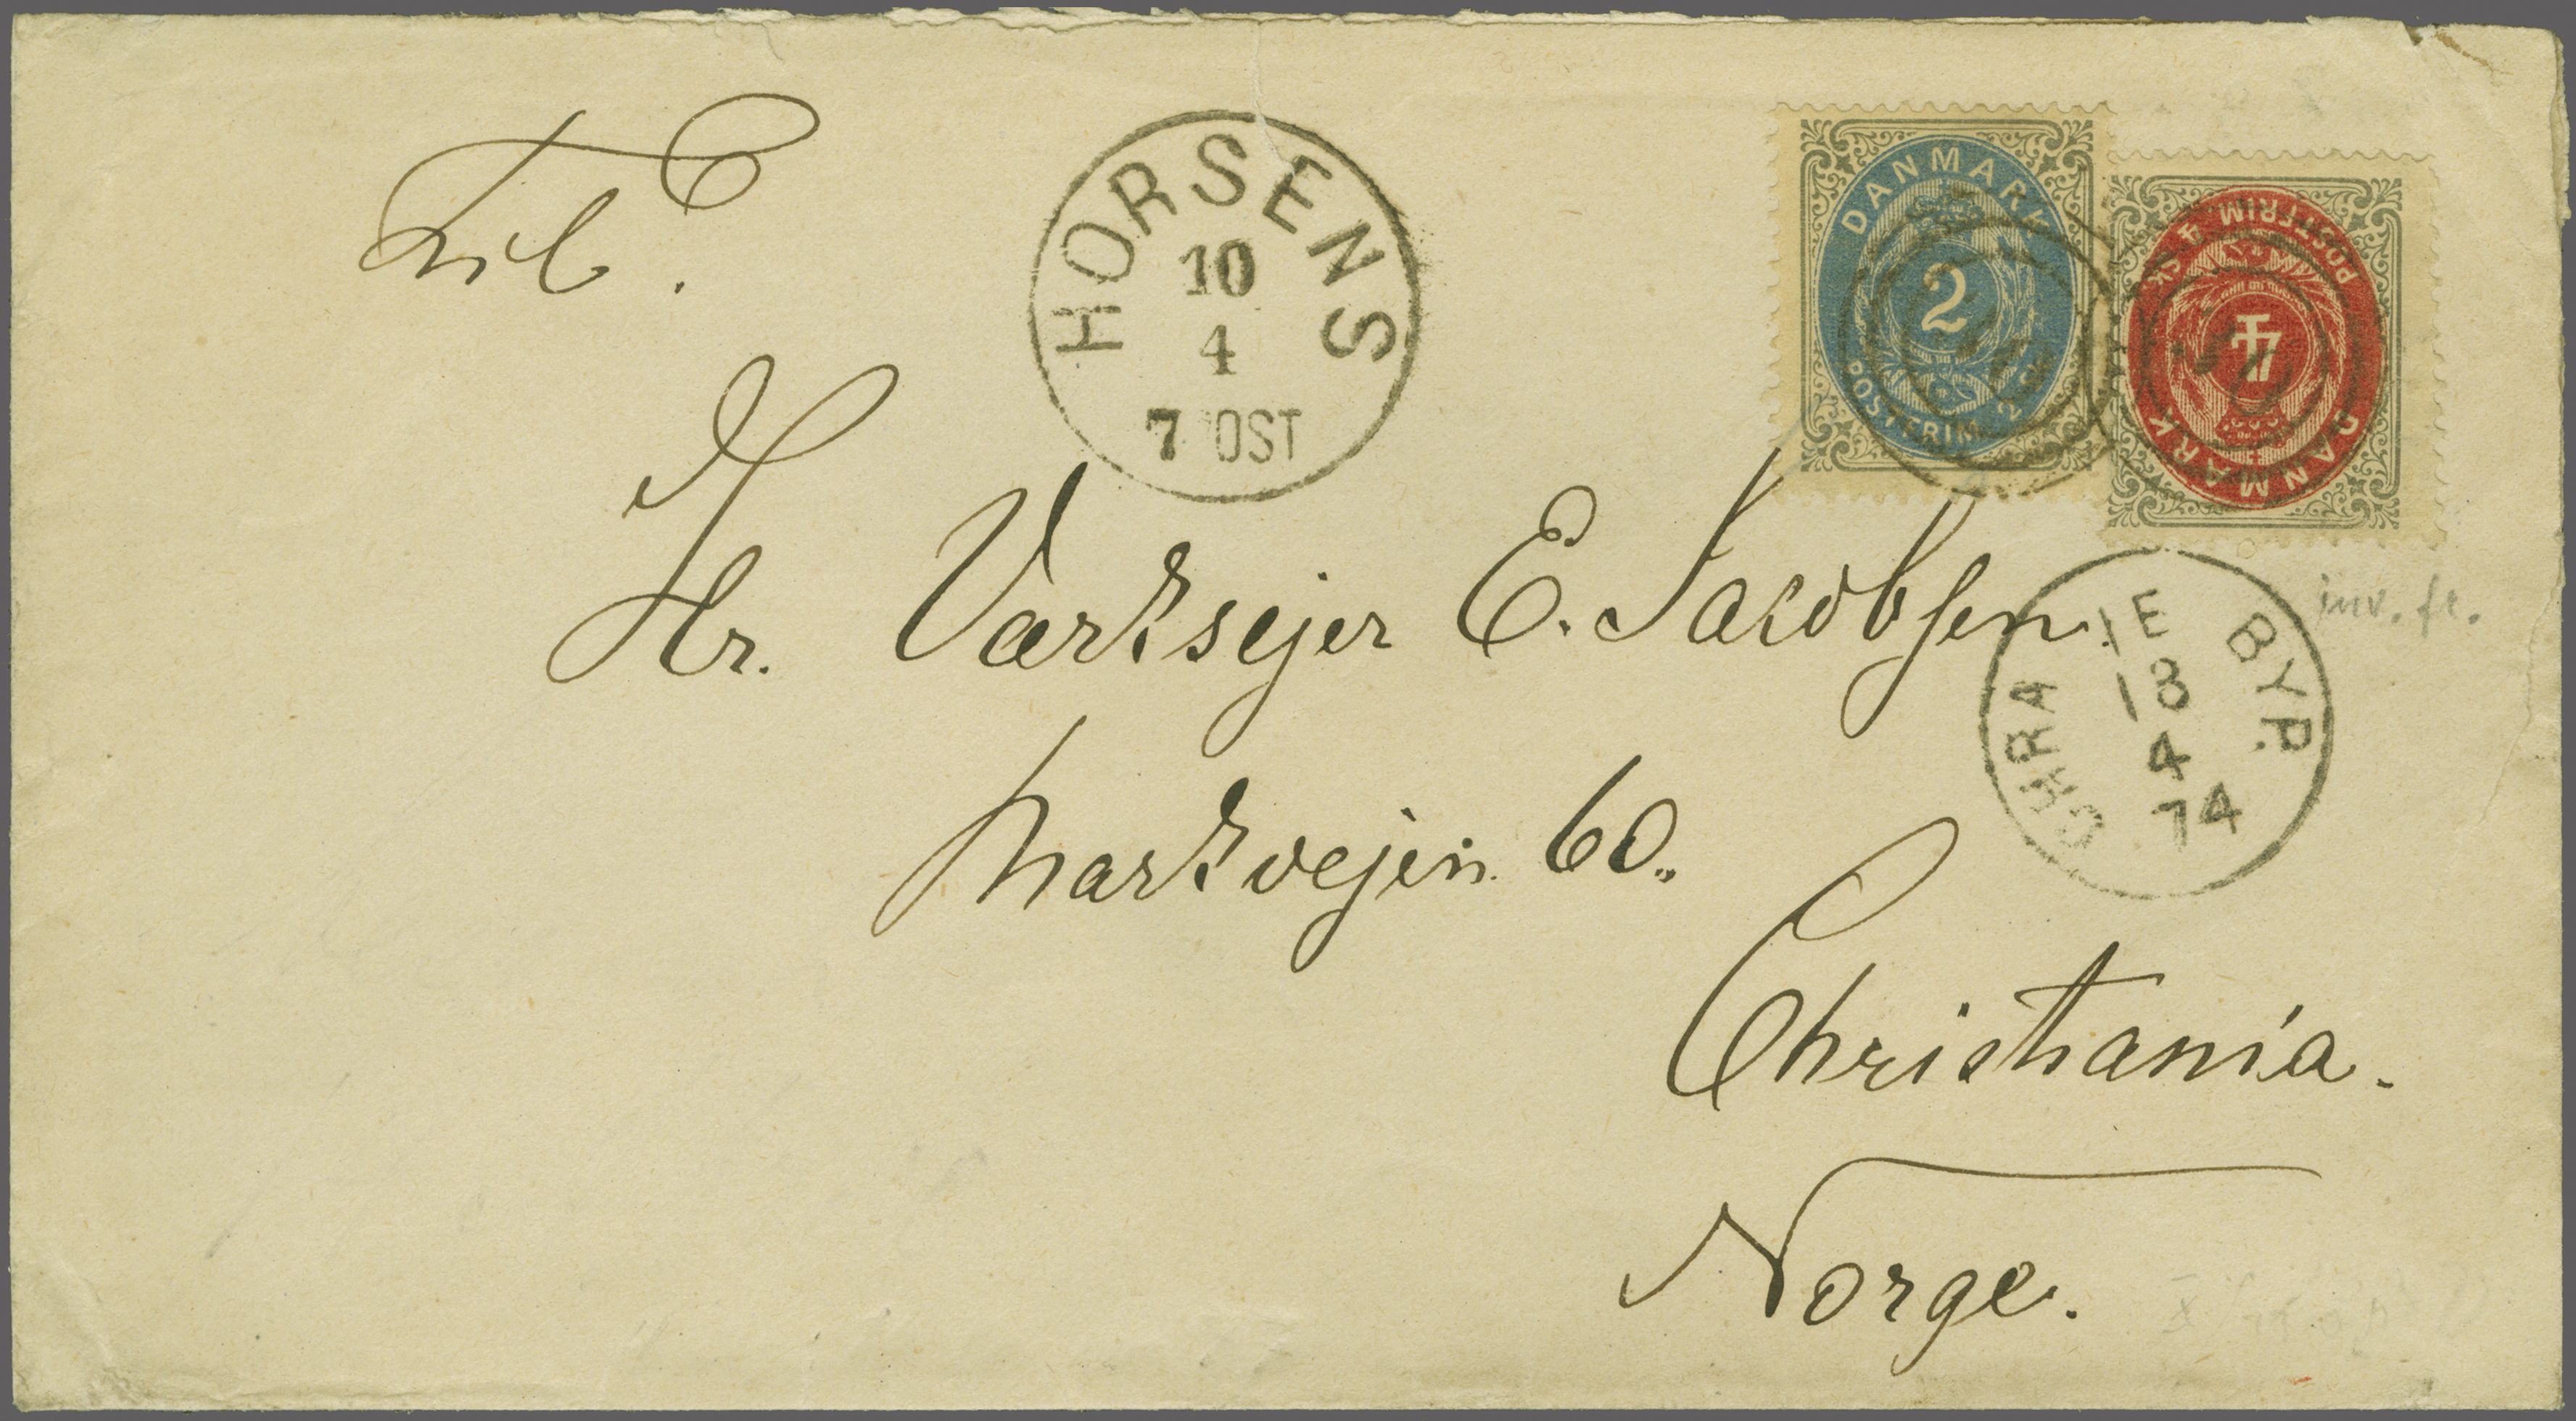 HORSENS
10
4
7 OST
DANMARK
2
POSTFRIM. 2
POSTFRIM. 4 SK
4
DANMARK
Hr. Værksejer E. Jacobsen.
inv. fr.
CHRA IE BYP.
13
4
74
Markvejen 60.
Christiania.
Norge.